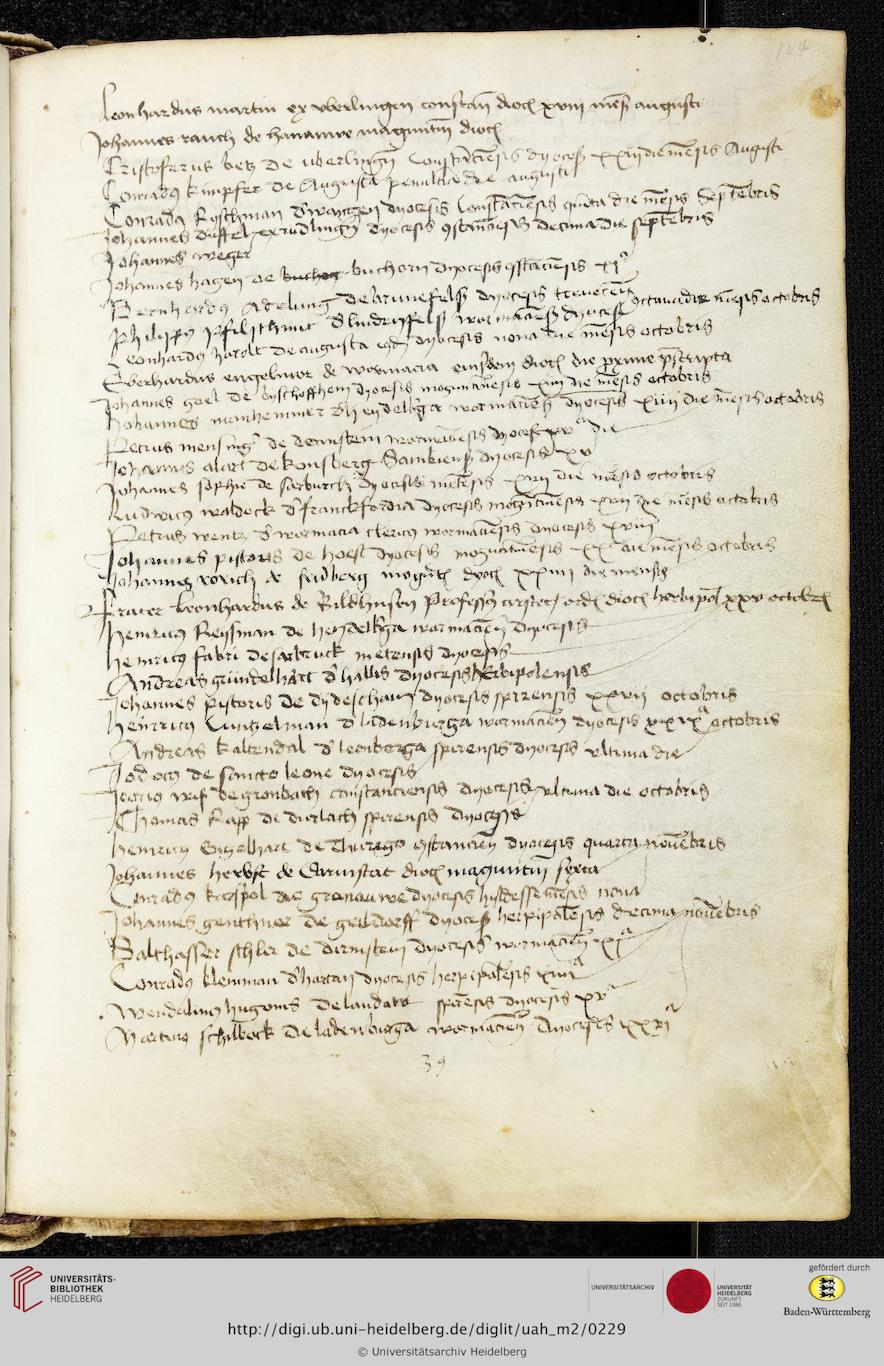 124
Leonhardus martin ex vberlingen constan dioc xviij mes augusti
Johannes rauch de hanauwe maguntin dioc
Cristoferus betz de uberlingen Constaciensis dyoces xxiij die mensis Augusti
Conradus kimpfer de Augusta penultia die augusti
Conradus Ryschman d wangen dyocesis Constaciensis quita die mesis Septebris
Johannes deffel ex rudlingen dyocesis decima die septebris
Johannes weger
Johannes hagen de buchorn dyocesis xi
Bernhardus Adelung de brunefels dyocesis octaua die mesis octobris
Philippus d lindenfels wormacies dyoces
Leonhardus harolt de augusta dyocesis nona die mesis octobris
Eberhardus engelmor de wormacia eiusdem dioc die
Johannes goel de byschoffhem dyocesis moguntinesis xiij die mesis octobris
Johannes manhemmer d heydelberga wormacies dyocesis xiiij die mesis octobris
Petrus de dermstein wormaciesis dyoces xv die
Johannes alart de konsberg Sambiens dyocesis xv
Johannes sophie de sarburch dyocesis metesis xvij die mesis octobris
Ludwicus waldeck d franckfordia dyocesis mogutinesis xvij die mesis octobris
Petrus wentz d wormacia clericus wormaciesis dyocesis xviij
Johannes pistoris de hoest dyocesis mogutinesis xx die mensis octobris
Johannes rorich de fridberg mogutin dyoc xxiiij die mensis
Frater leonhardus de Bildhusen Professus cister ordis dioc herbipol xxv octobris
Henricus Reysman de heydelberga wormacien dyocesis
henricus fabri de sarbruck metensis dyocesis
Andreas gründelhart d hallis dyocesis herbipolensis
Johannes pistoris de dydeschaim dyocesis spirensis xxvij octobris
Heinricus Cuntzelman d ladenburga wormacien dyocesis xxix octobris
Andreas kaltendal d leonberga spirensis dyocesis vltima die
Jodocus de sancto leone dyocesis
Jeorius wys de gronbach constanciensis dyocesis vltima die octobris
Thomas kapp de durlach spirensis dyocesis
henricus Engelhart de Thurego dyocesis quarta nouebris
Johannes herbst de Earmstat dioc maguntin sexta
Conradus de gronauwe dyocesis hyldessemesis nona
Johannes genthner de geildorff dyoces herpipolesis decima nouebris
Balthasser schler de dirmstein dyocesis wormacien xi
Conradus kleinman d dyocesis herpipolesis xiiij
Wendalinus hugonis de landaw spiresis dyocesis xv
Martinus schilbock de ladenburga wormacien dyocesis xxii
39
UNIVERSITÄTS-
BIBLIOTHEK
HEIDELBERG
UNIVERSITÄTSARCHIV
UNIVERSITÄT
HEIDELBERG
ZUKUNFT
SEIT 1386
gefördert durch
Baden-Württemberg
http://digi.ub.uni-heidelberg.de/diglit/uah_m2/0229
© Universitätsarchiv Heidelberg